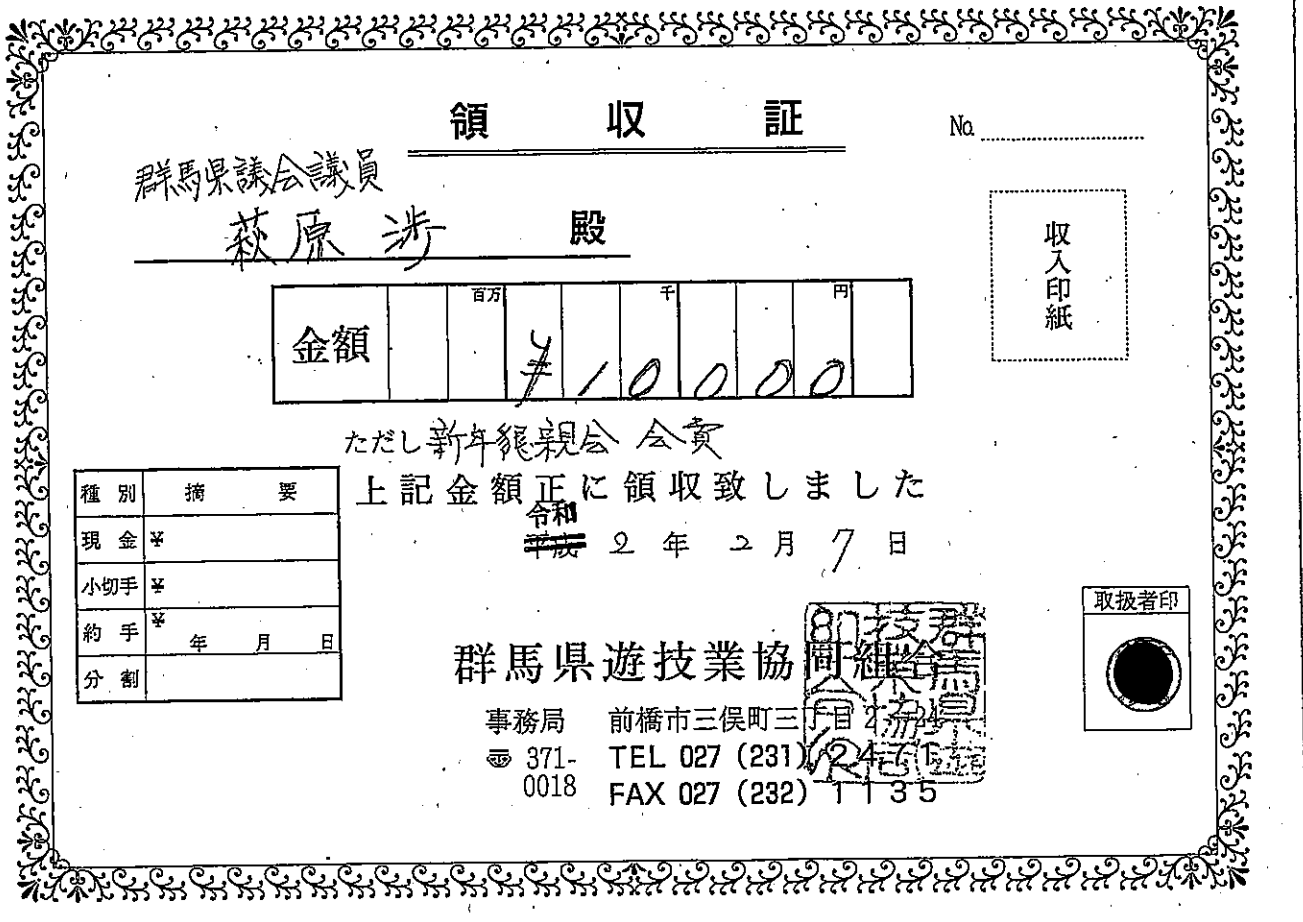 領収証
No.
群馬県議会議員
萩原 渉 殿
収入印紙
百万 千 円
金額 ¥10000
ただし 新年懇親会 会費
上記金額正に領収致しました
令和
平成 2年 2月 7日
種別 摘要
現金 ¥
小切手 ¥
約手 ¥ 年 月 日
分割
取扱者印
群馬県遊技業協同組合
事務局 前橋市三俣町三丁目
〠 371-0018
TEL 027 (231) 2471
FAX 027 (232) 1135